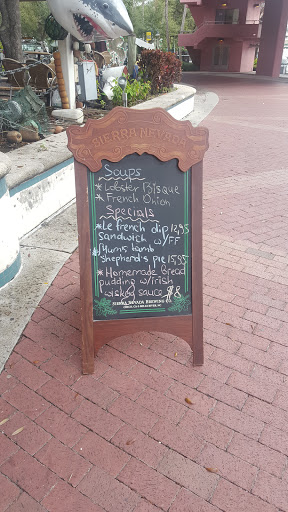 SIERRA NEVADA
Soups
*Lobster Bisque
*French Onion
Specials
*Le french dip 12,95
sandwich w/FF
*4ums lamb
shepherd's pie 15,95
*Homemade bread
pudding w/irish
wiskey sauce $8
SIERRA NEVADA BREWING CO.